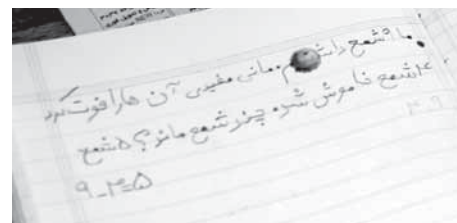 ما ۹ شمع داشتیم. مانی مفیدی آن ها را فوت کرد
۴ شمع خاموش شد. چند شمع ماند؟ ۵ شمع
۹-۴=۵